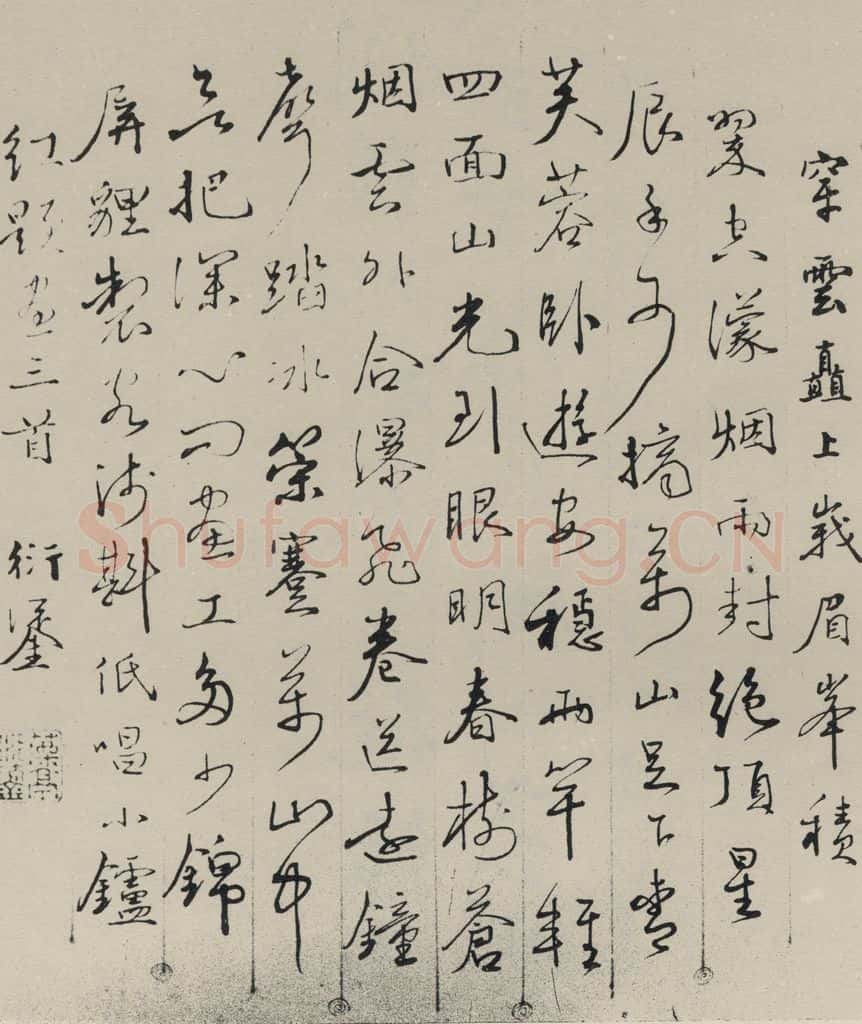 穿雲矗上峩眉峯積
翠空濛烟雨封絶頂星
辰手可摘萬山足下青
芙蓉卧遊安穩兩竿輕
四面山光到眼明春樹蒼
烟雲外合瀑飛卷送遠鐘
聲踏冰策蹇萬山中
把深心問畫工多少錦
屏貍製淺斟低唱小鑪
紅題画三首 衍鎏
Shufawang.CN